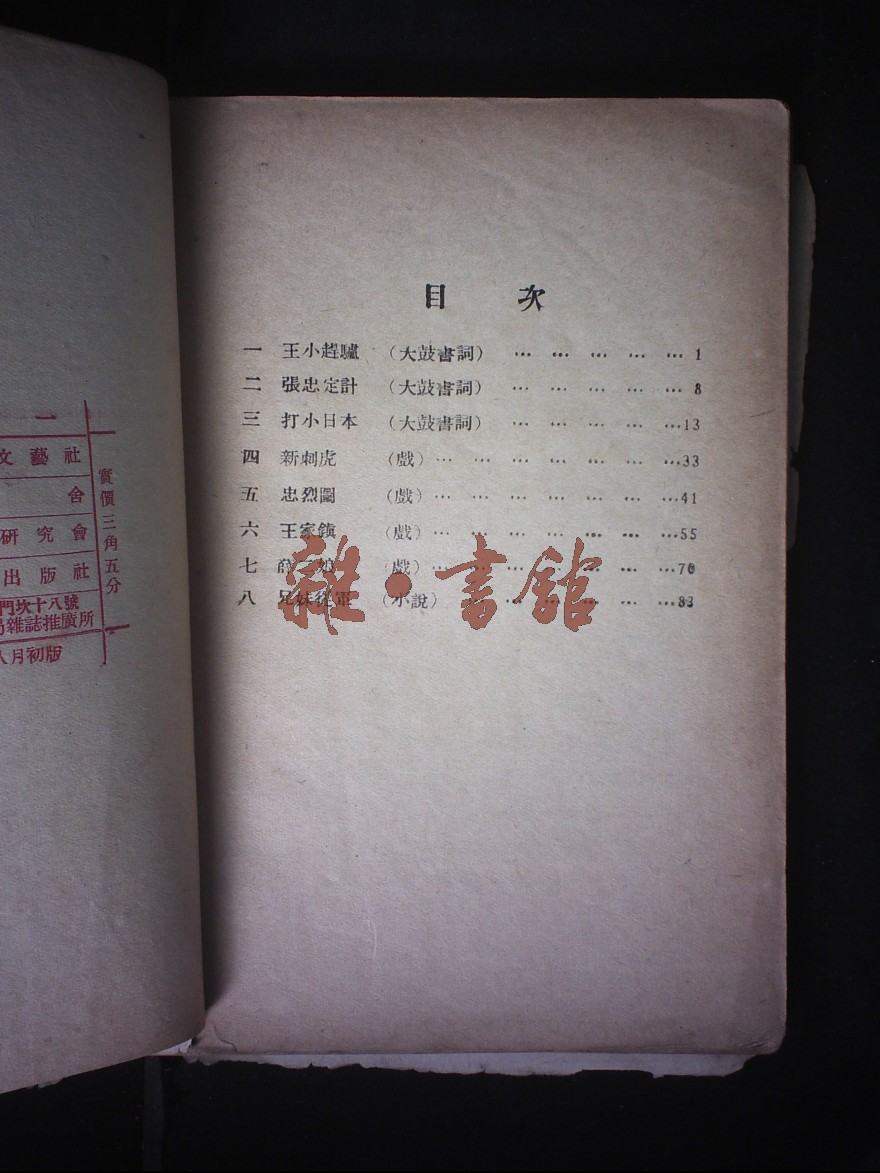 目 次
一 王小趕驢 (大鼓書詞) … … … … … 1
二 張忠定計 (大鼓書詞) … … … … … 8
三 打小日本 (大鼓書詞) … … … … …13
四 新刺虎 (戲)… … … … … … …33
五 忠烈圖 (戲)… … … … … … …41
六 王家鎮 (戲)… … … … … … …55
七 薛二娘 (戲)… … … … … … …70
八 兄妹從軍 (小說) … … … … … …83
雜·書館
一
文藝社
舍
研究會
出版社
門坎十八號
局雜誌推廣所
八月初版
實價三角五分